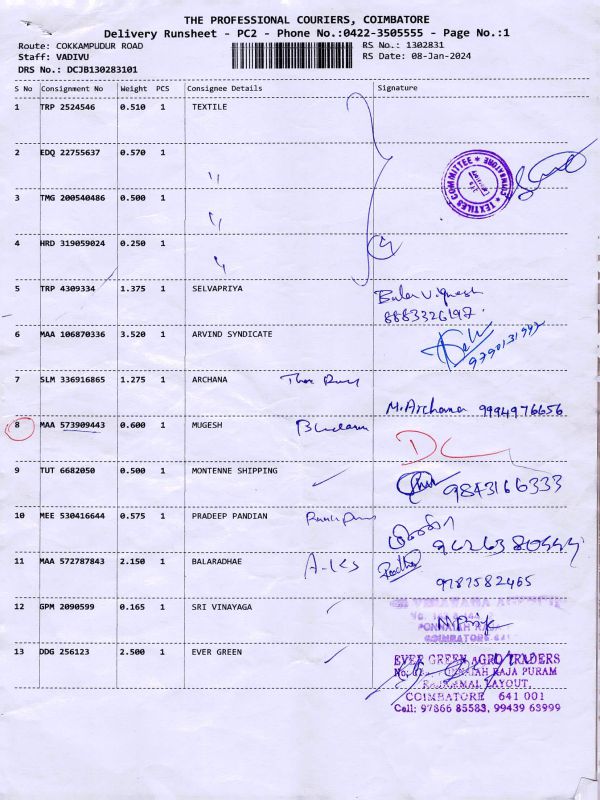 THE PROFESSIONAL COURIERS, COIMBATORE
Delivery Runsheet - PC2 - Phone No.:0422-3505555 - Page No.:1
Route: COKKAMPUDUR ROAD RS No.: 1302831
Staff: VADIVU RS Date: 08-Jan-2024
DRS No.: DCJB130283101
S No Consignment No Weight PCS Consignee Details Signature
1 TRP 2524546 0.510 1 TEXTILE
2 EDQ 22755637 0.570 1 "
TEXTILES COMMITTEE COIMBATORE
3 TMG 200540486 0.500 1 "
4 HRD 319059024 0.250 1 " 4
5 TRP 4309334 1.375 1 SELVAPRIYA Bala Vignesh
8883326192
6 MAA 106870336 3.520 1 ARVIND SYNDICATE
7 SLM 336916865 1.275 1 ARCHANA
M. Archana 9994976656
8 MAA 573909443 0.600 1 MUGESH
9 TUT 6682050 0.500 1 MONTENNE SHIPPING 9843166333
10 MEE 530416644 0.575 1 PRADEEP PANDIAN
11 MAA 572787843 2.150 1 BALARADHAE Radha
9787582465
12 GPM 2090599 0.165 1 SRI VINAYAGA
COIMBATORE
13 DDG 256123 2.500 1 EVER GREEN
EVER GREEN AGRO TRADERS
RAJA PURAM
LAYOUT,
COIMBATORE 641 001
Cell: 97866 85583, 99439 63999